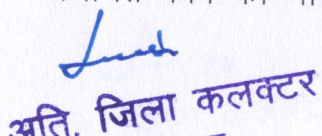 अति. जिला कलक्टर